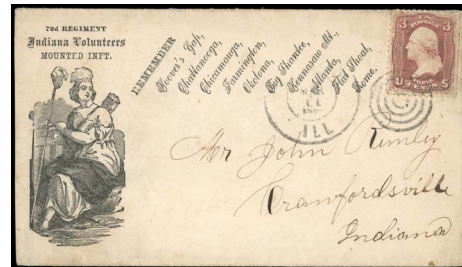 72d REGIMENT
Indiana Volunteers
MOUNTED INFT.
REMEMBER
Hoover's Gap,
Chattanooga,
Chicamauga,
Farmington,
Okolona,
Big Shantee,
Kennesaw Mt.,
Atlanta,
Flat Shoal,
Rome.
3 3
U S
ILL
Mr John Rumley
Crawfordsville
Indiana